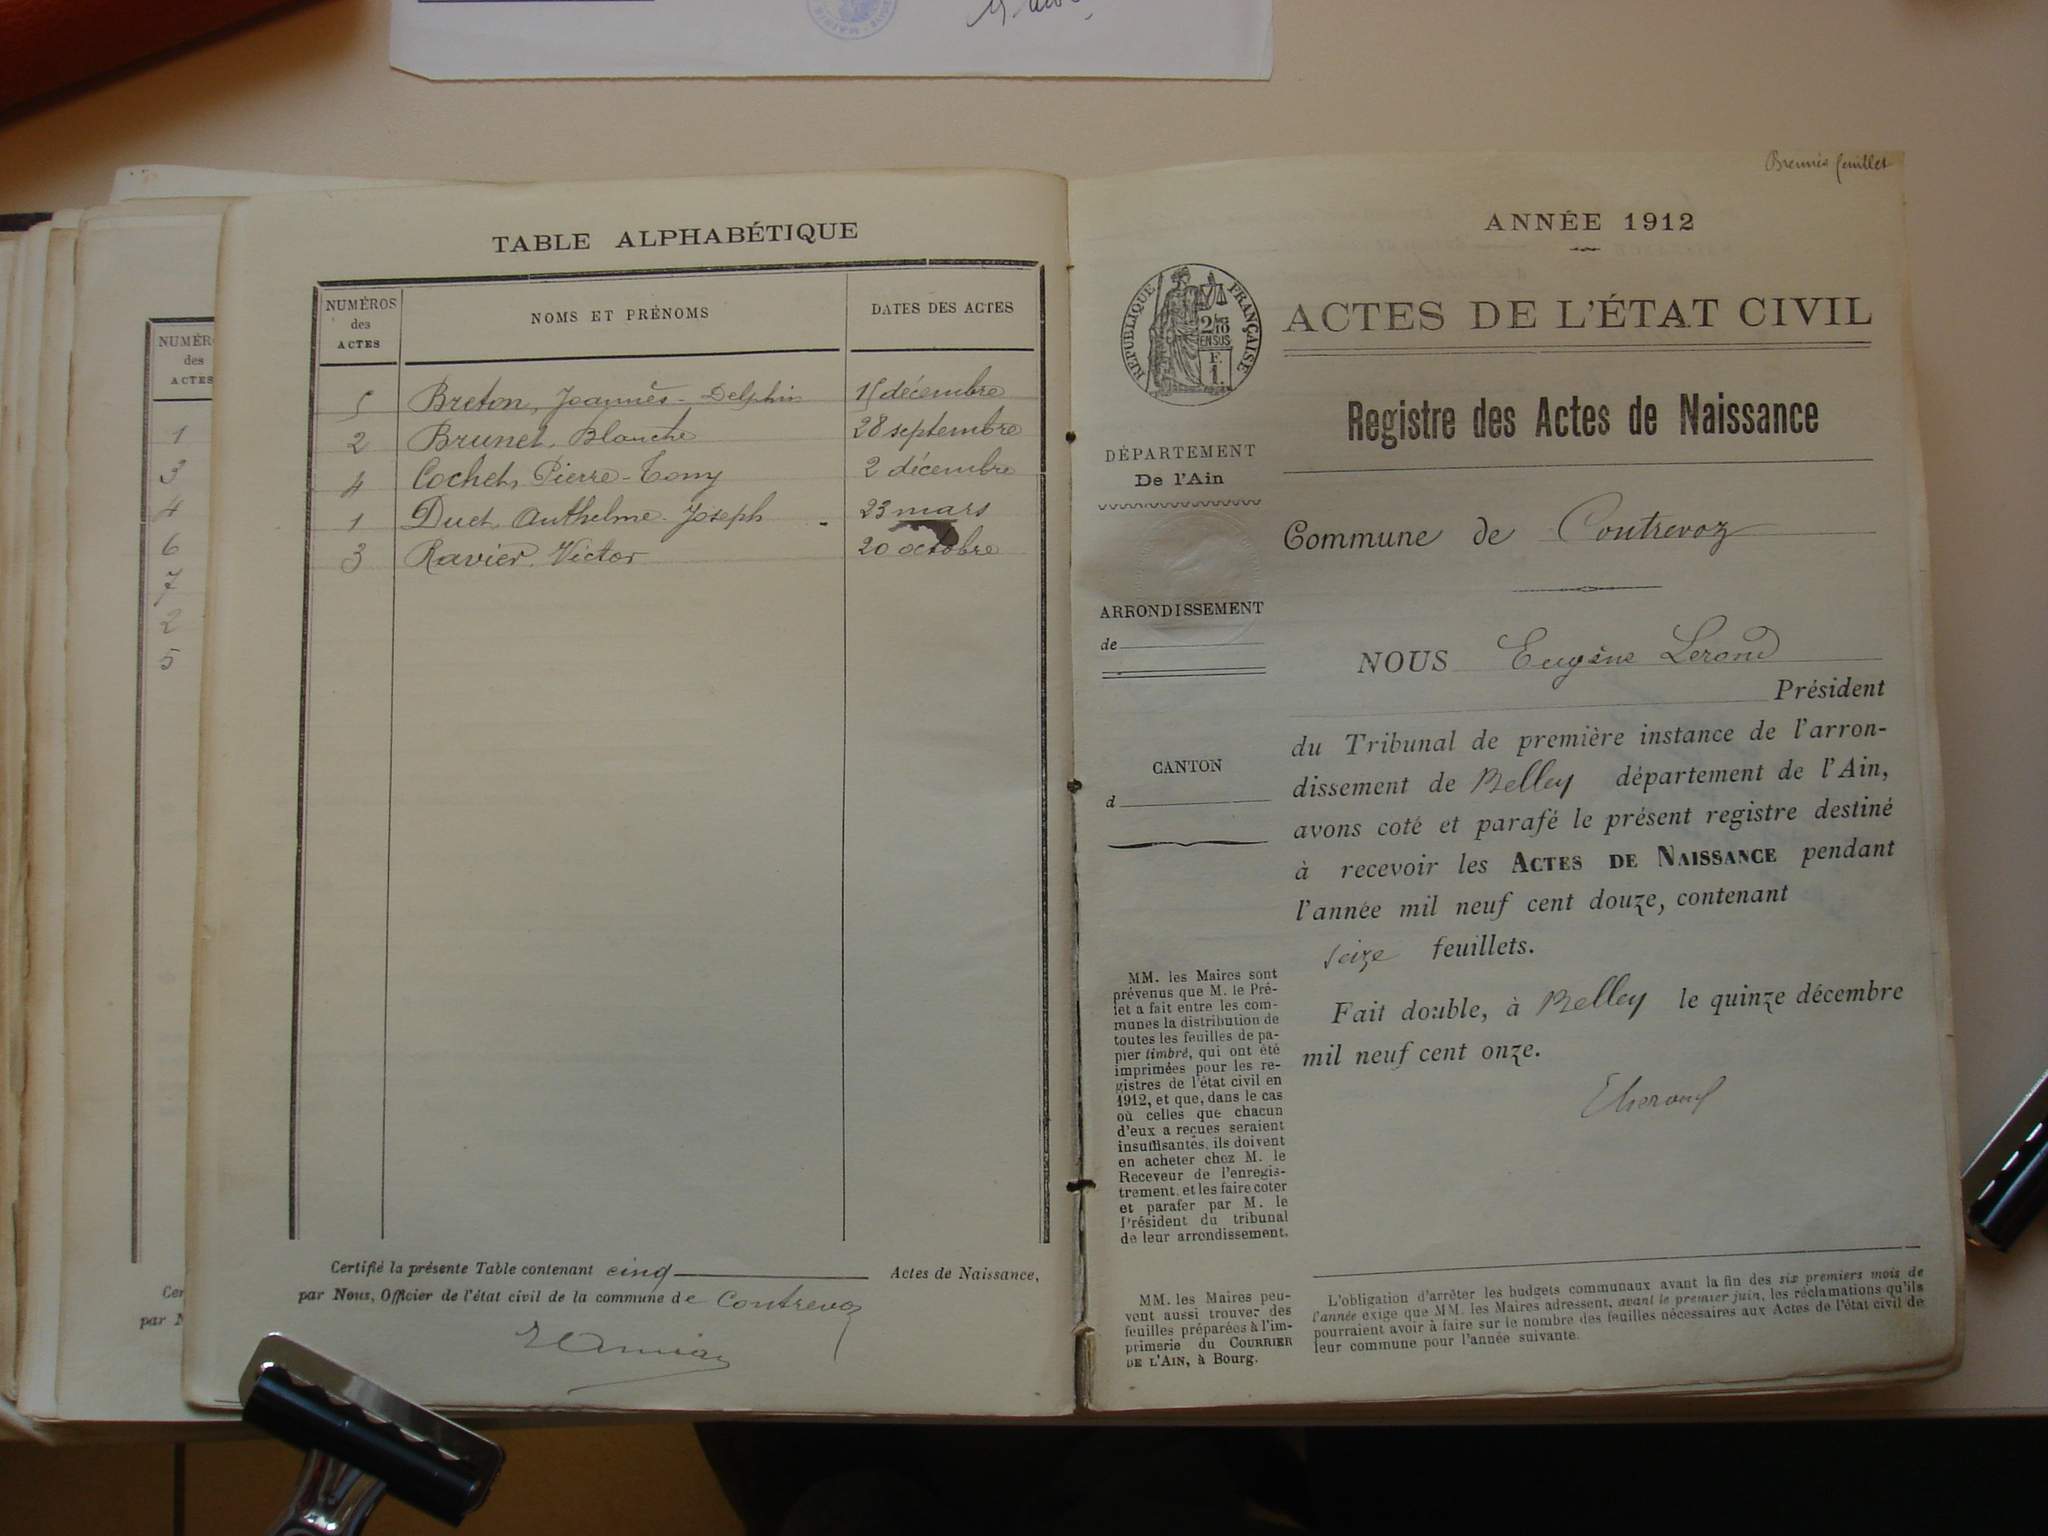 TABLE ALPHABÉTIQUE
NUMÉROS des ACTES
NOMS ET PRÉNOMS
DATES DES ACTES
5 Breton, Joannès-Delphin 15 décembre
2 Brunet, Blanche 28 septembre
4 Cochet, Pierre-Tony 2 décembre
1 Duet, Anthelme-Joseph 23 mars
3 Ravier, Victor 20 octobre
Certifié la présente Table contenant cinq Actes de Naissance,
par Nous, Officier de l'état civil de la commune de Contrevoz
NUMÉR
des
ACTES
1
3
4
6
7
2
5
Cer
par N
feuillet
ANNÉE 1912
RÉPUBLIQUE FRANÇAISE
2/10
EN SUS
F.
1.
ACTES DE L'ÉTAT CIVIL
Registre des Actes de Naissance
DÉPARTEMENT
De l'Ain
Commune de Contrevoz
ARRONDISSEMENT
de
NOUS Eugène Lerond
Président
du Tribunal de première instance de l'arron-
dissement de Belley département de l'Ain,
avons coté et parafé le présent registre destiné
à recevoir les ACTES DE NAISSANCE pendant
l'année mil neuf cent douze, contenant
seize feuillets.
Fait double, à Belley le quinze décembre
mil neuf cent onze.
CANTON
d
MM. les Maires sont
prévenus que M. le Pré-
fet a fait entre les com-
munes la distribution de
toutes les feuilles de pa-
pier timbré, qui ont été
imprimées pour les re-
gistres de l'état civil en
1912, et que, dans le cas
où celles que chacun
d'eux a reçues seraient
insuffisantes, ils doivent
en acheter chez M. le
Receveur de l'enregis-
trement, et les faire coter
et parafer par M. le
Président du tribunal
de leur arrondissement.
MM. les Maires peu-
vent aussi trouver des
feuilles préparées à l'im-
primerie du COURRIER
DE L'AIN, à Bourg.
L'obligation d'arrêter les budgets communaux avant la fin des six premiers mois de
l'année exige que MM. les Maires adressent, avant le premier juin, les réclamations qu'ils
pourraient avoir à faire sur le nombre des feuilles nécessaires aux Actes de l'état civil de
leur commune pour l'année suivante.